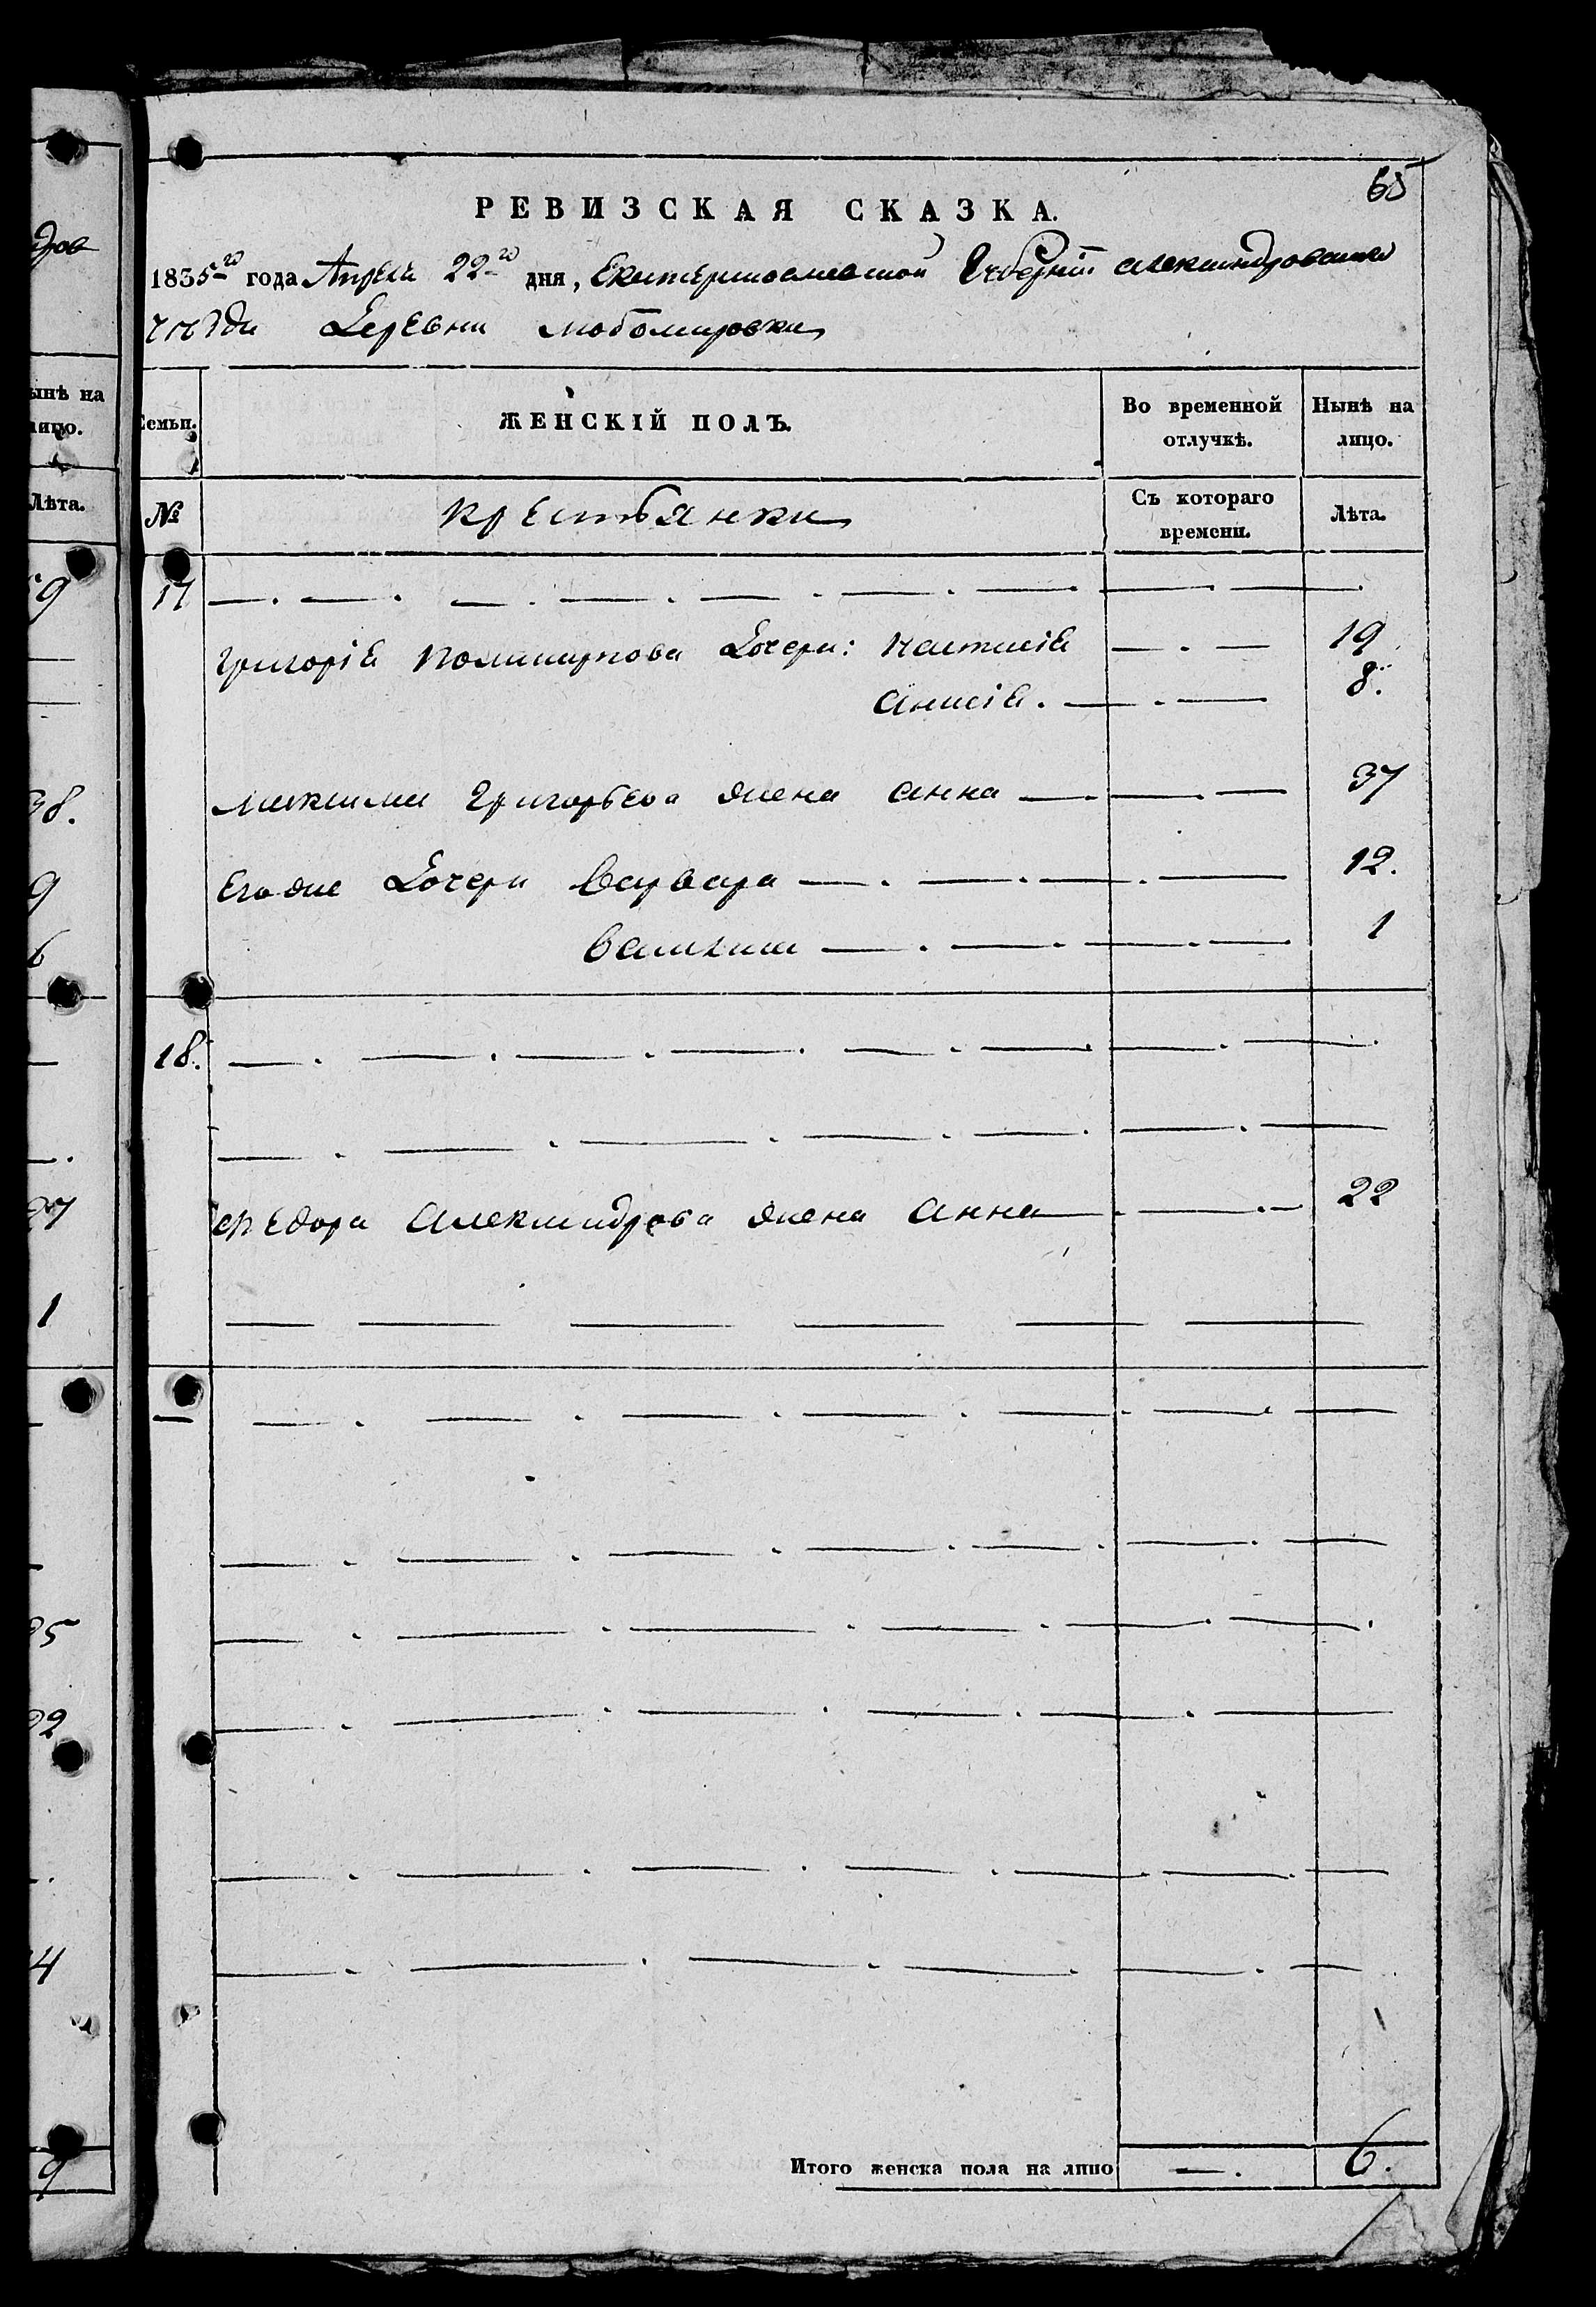 дов
ынѣ на
лицо.
Лѣта.
9
38.
9
6
27
1
25
22
4
9
65
РЕВИЗСКАЯ СКАЗКА.
1835го года Апреля 22го дня, Екатеринославской Губернiи александровскаго
уезда Деревни любомировки
Семьи. ЖЕНСКІЙ ПОЛЪ. Во временной отлучкѣ. Нынѣ на лицо.
№ крестьянки Съ котораго времени. Лѣта.
17
григорiя поликарпова Дочери: настасiя 19
анисiя. 8.
максима григорьева жена анна 37
Его же Дочери варвара 12.
1
18.
федора александрова жена анна 22
Итого женска пола на лицо 6.